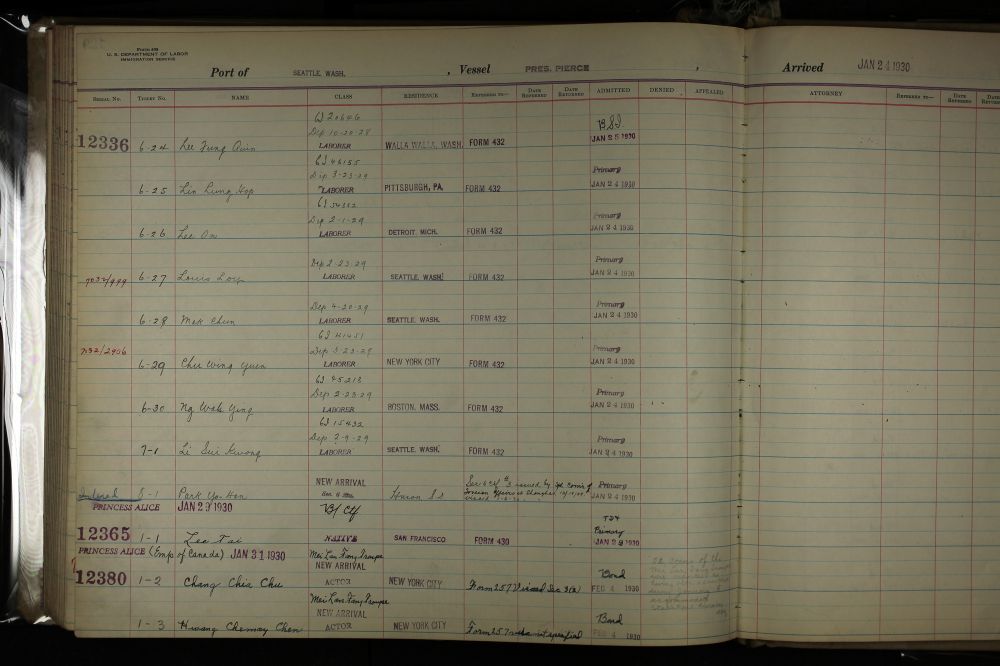 Form 409
U. S. DEPARTMENT OF LABOR
IMMIGRATION SERVICE
Port of SEATTLE, WASH. , Vessel PRES. PIERCE , Arrived JAN 24 1930
SERIAL NO. TICKET NO. NAME CLASS RESIDENCE REFERRED TO— DATE REFERRED DATE RETURNED ADMITTED DENIED APPEALED ATTORNEY REFERRED TO— DATE REFERRED DATE
CI 20646
Dep 10-20-28 B.S.I.
12336 6-24 Lee Fung Quin LABORER WALLA WALLA, WASH. FORM 432 JAN 25 1930
CI 46155
Dep 3-23-29 Primary
6-25 Lin Lung Hop LABORER PITTSBURGH, PA. FORM 432 JAN 24 1930
CI
Dep 2-1-29 Primary
6-26 Lee On LABORER DETROIT, MICH. FORM 432 JAN 24 1930
Dep 2-23-29 Primary
6-27 Louis Loy LABORER SEATTLE, WASH. FORM 432 JAN 24 1930
Dep 4-20-29 Primary
6-28 Mak Chun LABORER SEATTLE, WASH. FORM 432 JAN 24 1930
CI 41451
7032/2906 Dep 3-23-29 Primary
6-29 Chu Wing Yuen LABORER NEW YORK CITY FORM 432 JAN 24 1930
CI 45213
Dep 2-23-29 Primary
6-30 Ng Wah Ying LABORER BOSTON, MASS. FORM 432 JAN 24 1930
CI 15432
Dep 2-9-29 Primary
7-1 Li Sui Kwong LABORER SEATTLE, WASH. FORM 432 JAN 24 1930
NEW ARRIVAL Sec 6 Ctf #3 issued by Primary
8-1 Park Yo Han Foreign Affairs at Shanghai JAN 24 1930
PRINCESS ALICE JAN 29 1930
12365 1-1 Lee Tai NATIVE SAN FRANCISCO FORM 430 Primary JAN 29 1930
PRINCESS ALICE (Emp of Canada) JAN 31 1930 Mei Lan Fang Troupe
NEW ARRIVAL Bond
12380 1-2 Chang Chia Chu ACTOR NEW YORK CITY Form 257 Visaed Sec 3(2) FEB 4 1930
Mei Lan Fang Troupe
NEW ARRIVAL Bond
1-3 Hwang Chemay Chen ACTOR NEW YORK CITY Form 257 FEB 4 1930